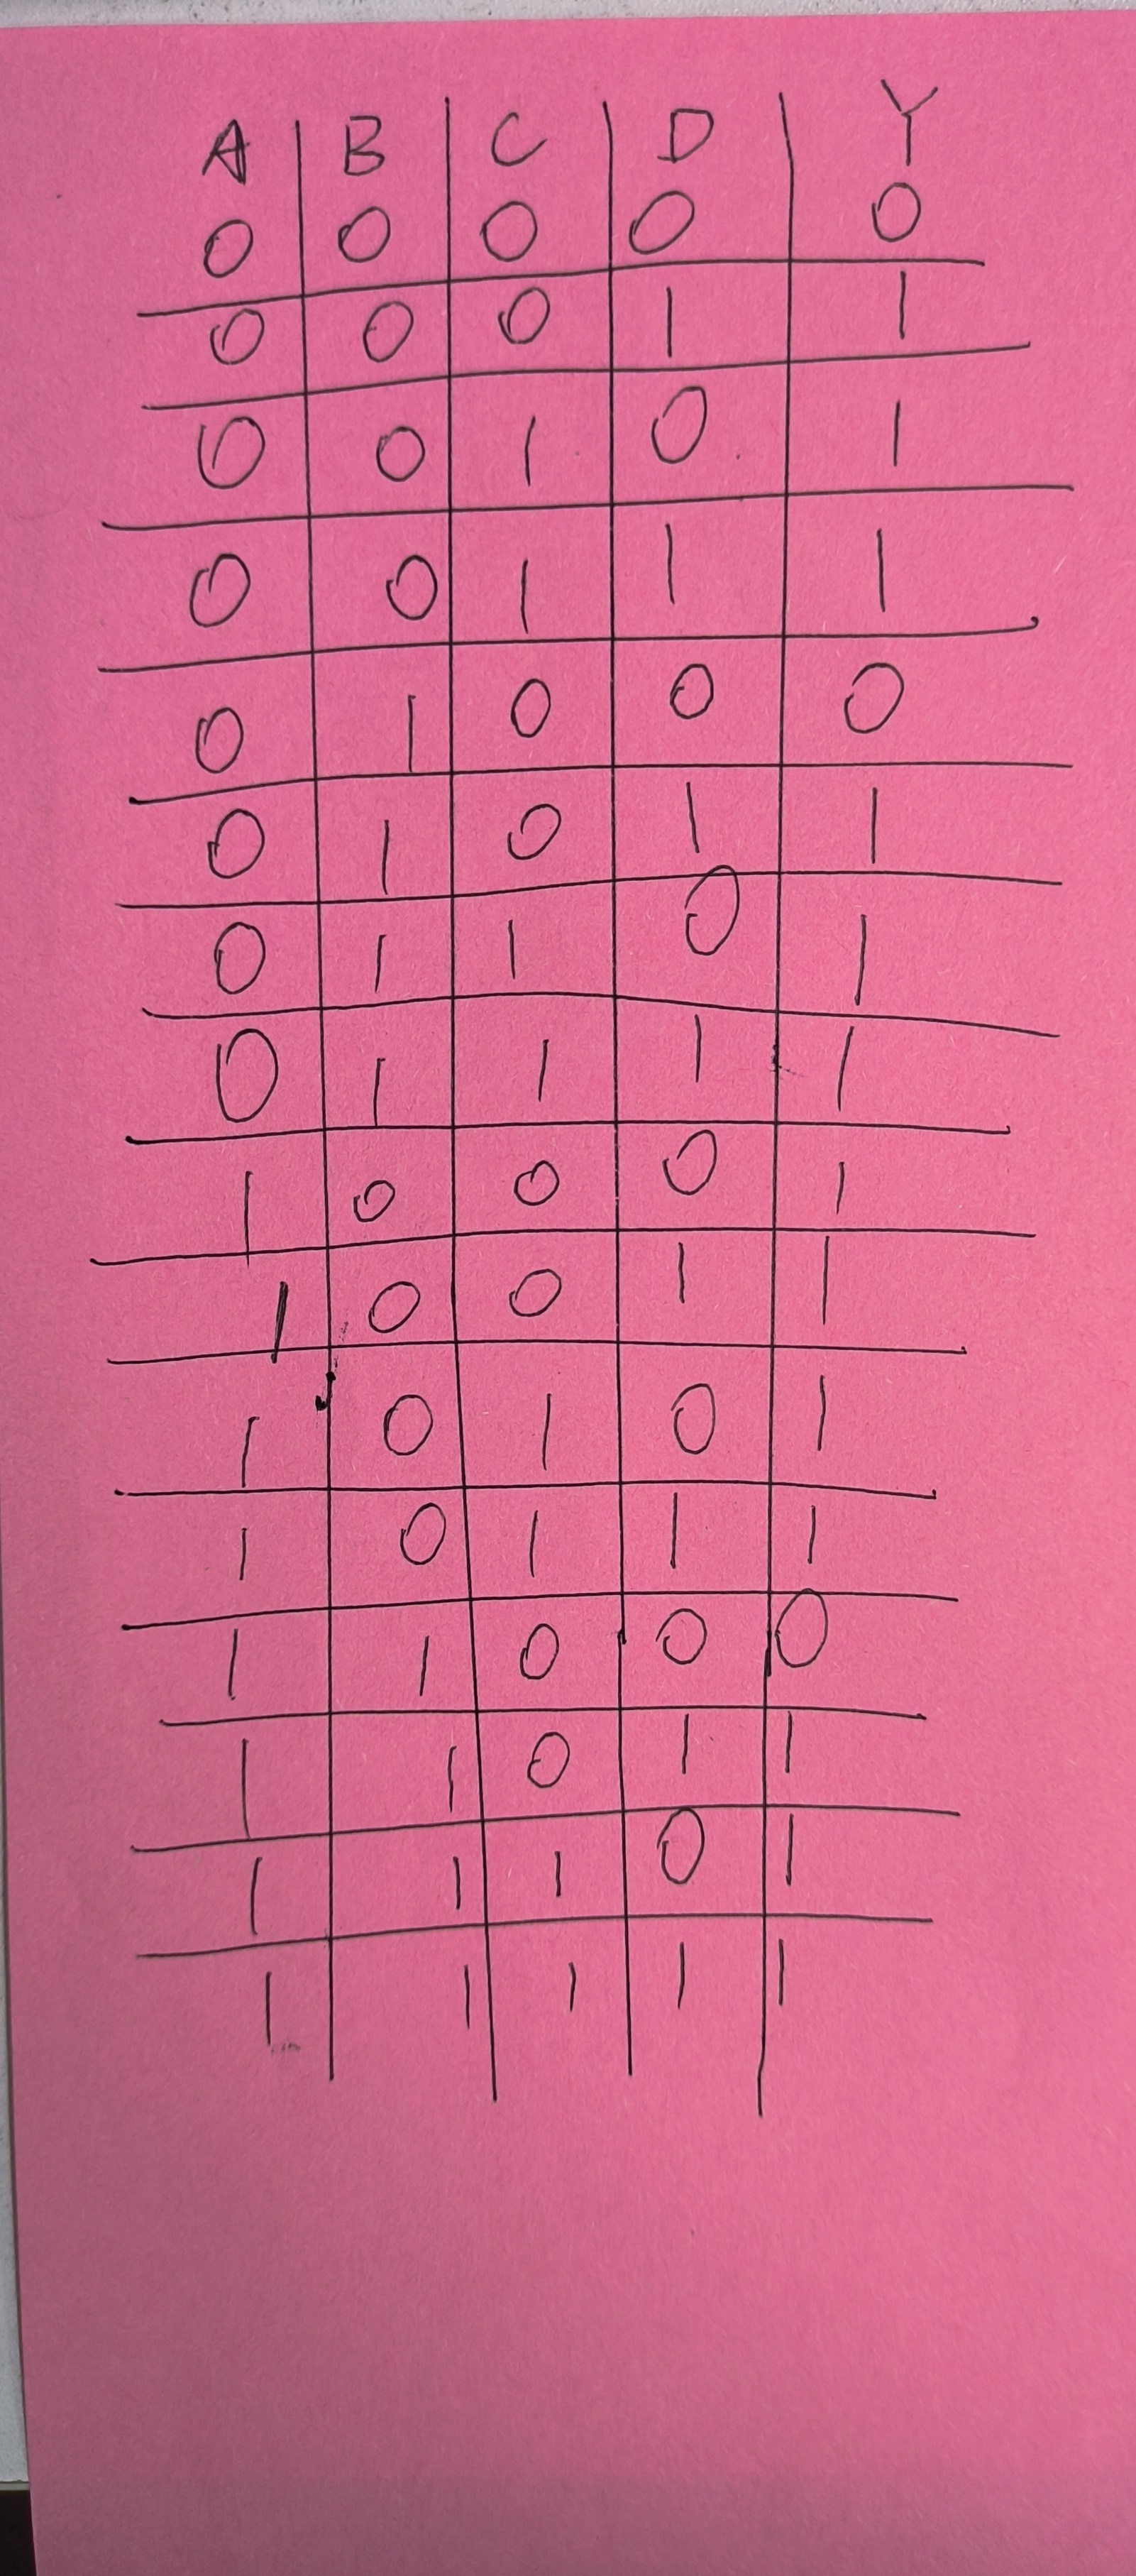 A B C D Y
0 0 0 0 0
0 0 0 1 1
0 0 1 0 1
0 0 1 1 1
0 1 0 0 0
0 1 0 1 1
0 1 1 0 1
0 1 1 1 1
1 0 0 0 1
1 0 0 1 1
1 0 1 0 1
1 0 1 1 1
1 1 0 0 0
1 1 0 1 1
1 1 1 0 1
1 1 1 1 1